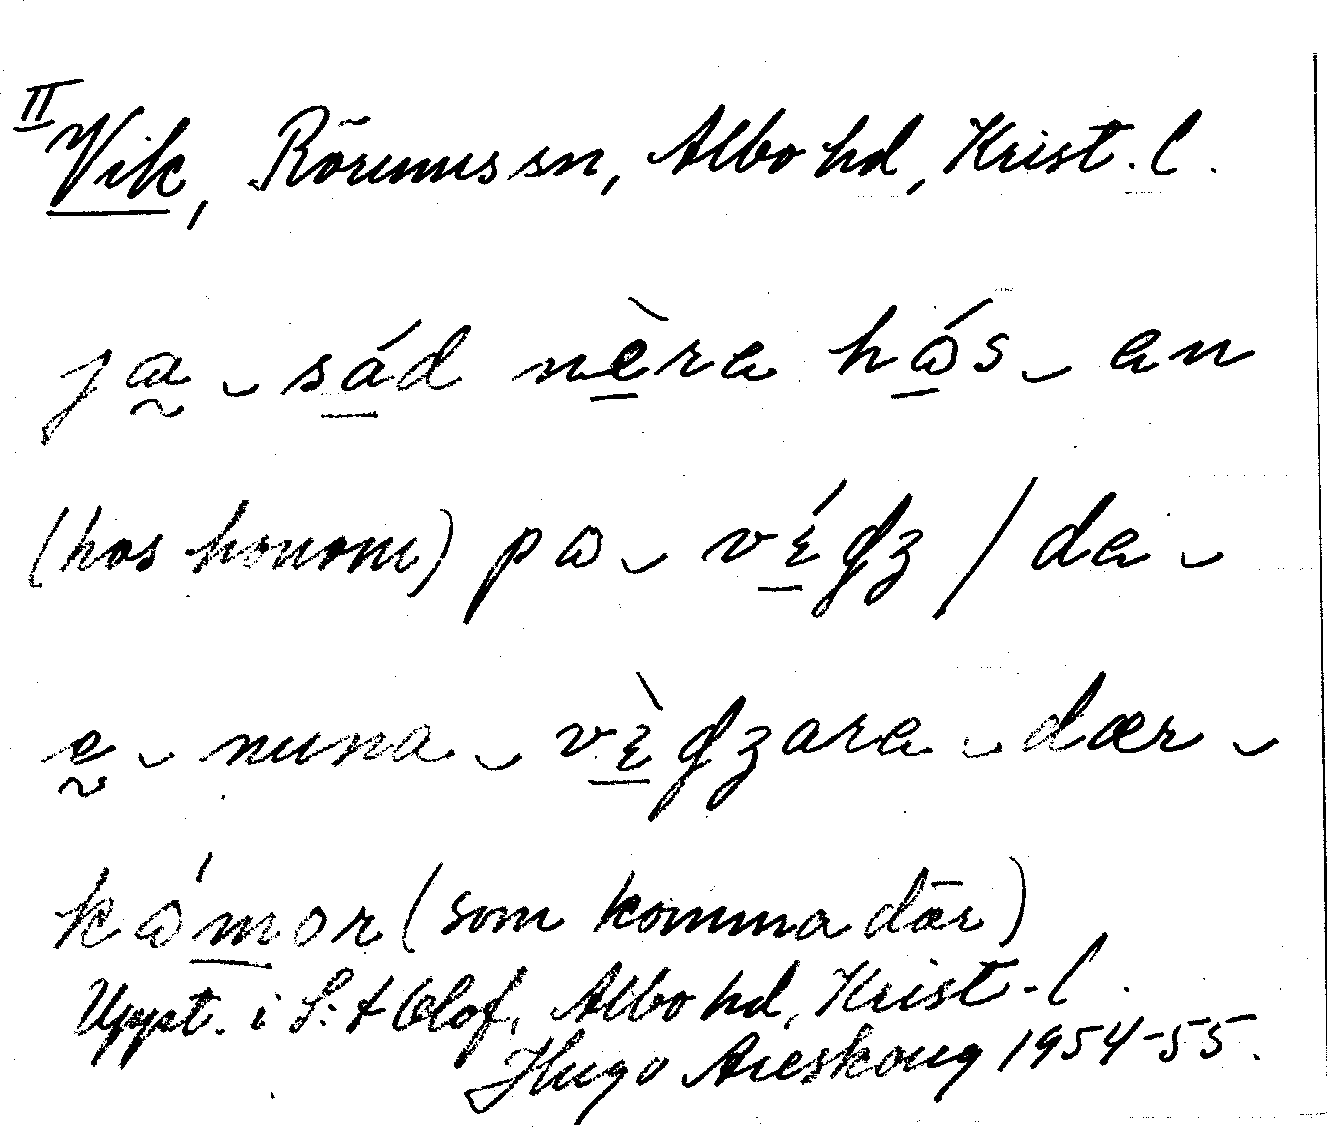 II
Vik, Rörums sn, Albo hd, Krist. l.
ja ‿ sád nèra hɷ́s ‿ an
(hos honom) pɷ ‿ vɛ́gz / da ‿
e ‿ nuna ‿ vɛ̀gzara ‿ dær ‿
kɷ́mor (som komma där)
Uppt. i S:t Olof, Albo hd, Krist. l.
Hugo Areskoug 1954-55.